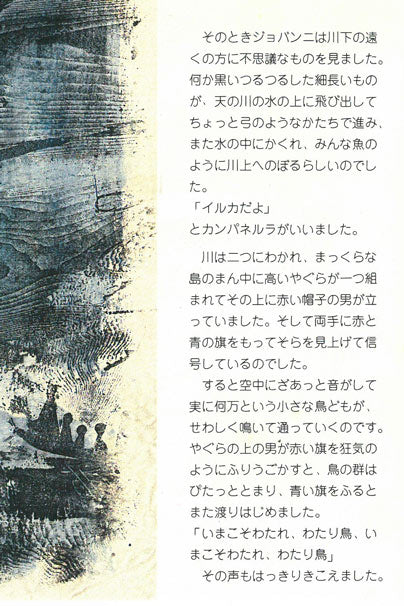 そのときジョバンニは川下の遠
くの方に不思議なものを見ました。
何か黒いつるつるした細長いもの
が、天の川の水の上に飛び出して
ちょっと弓のようなかたちで進み、
また水の中にかくれ、みんな魚の
ように川上へのぼるらしいのでし
た。
「イルカだよ」
とカンパネルラがいいました。
川は二つにわかれ、まっくらな
島のまん中に高いやぐらが一つ組
まれてその上に赤い帽子の男が立
っていました。そして両手に赤と
青の旗をもってそらを見上げて信
号しているのでした。
すると空中にざあっと音がして
実に何万という小さな鳥どもが、
せわしく鳴いて通っていくのです。
やぐらの上の男が赤い旗を狂気の
ようにふりうごかすと、鳥の群は
ぴたっととまり、青い旗をふると
また渡りはじめました。
「いまこそわたれ、わたり鳥、い
まこそわたれ、わたり鳥」
その声もはっきりきこえました。